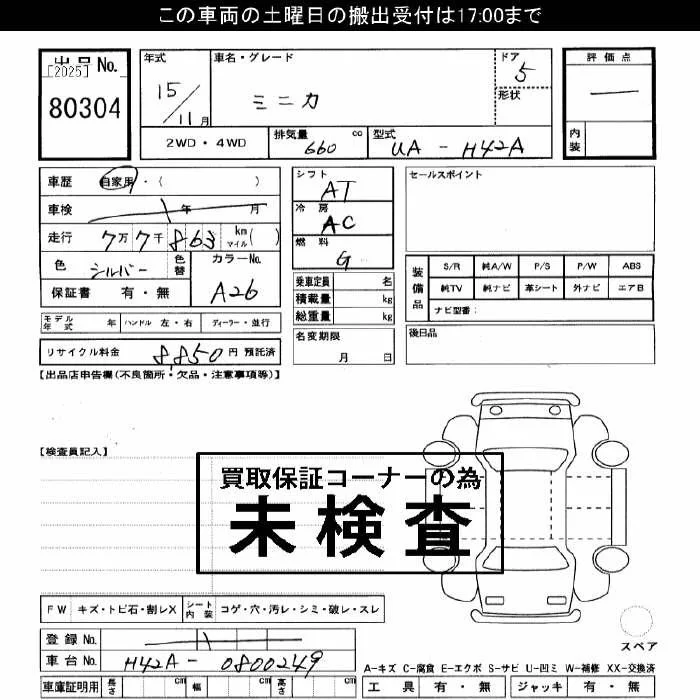 この車両の土曜日の搬出受付は17:00まで
出品 No.
[2025]
80304
年式
15/11月
車名・グレード
ミニカ
ドア
5
形状
評価点
―
内装
2WD・4WD
排気量 660 cc
型式 UA - H42A
車歴 自家用・( )
車検 年 月
走行 7万7千863 km マイル ( )
色 シルバー 色替
カラーNo.
A26
保証書 有・無
モデル年式 年 ハンドル 左・右 ディーラー・並行
リサイクル料金 8,850 円 預託済
シフト
AT
冷房
AC
燃料
G
乗車定員 名
積載量 kg
総重量 kg
名変期限
月 日
セールスポイント
装備品
S/R 純A/W P/S P/W ABS
純TV 純ナビ 革シート 外ナビ エアB
ナビ型番:
後日品
【出品店申告欄(不良箇所・欠品・注意事項等)】
【検査員記入】
買取保証コーナーの為
未検査
FW キズ・トビ石・割レX シート内装 コゲ・穴・汚レ・シミ・破レ・スレ
スペア
登録 No.
車台 No. H42A - 0800249
車庫証明用 長さ cm 幅 cm 高さ cm
A-キズ C-腐食 E-エクボ S-サビ U-凹ミ W-補修 XX-交換済
工具 有・無 ジャッキ 有・無